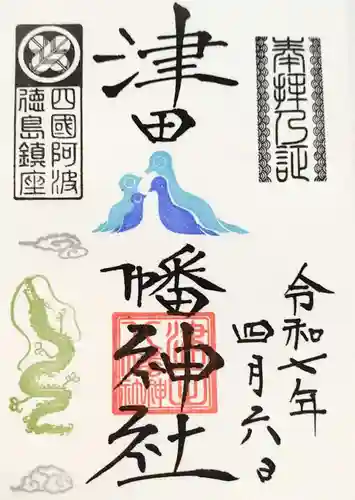 奉拝乃証
令和七年
四月六日
津田
八幡神社
四國阿波
徳島鎮座